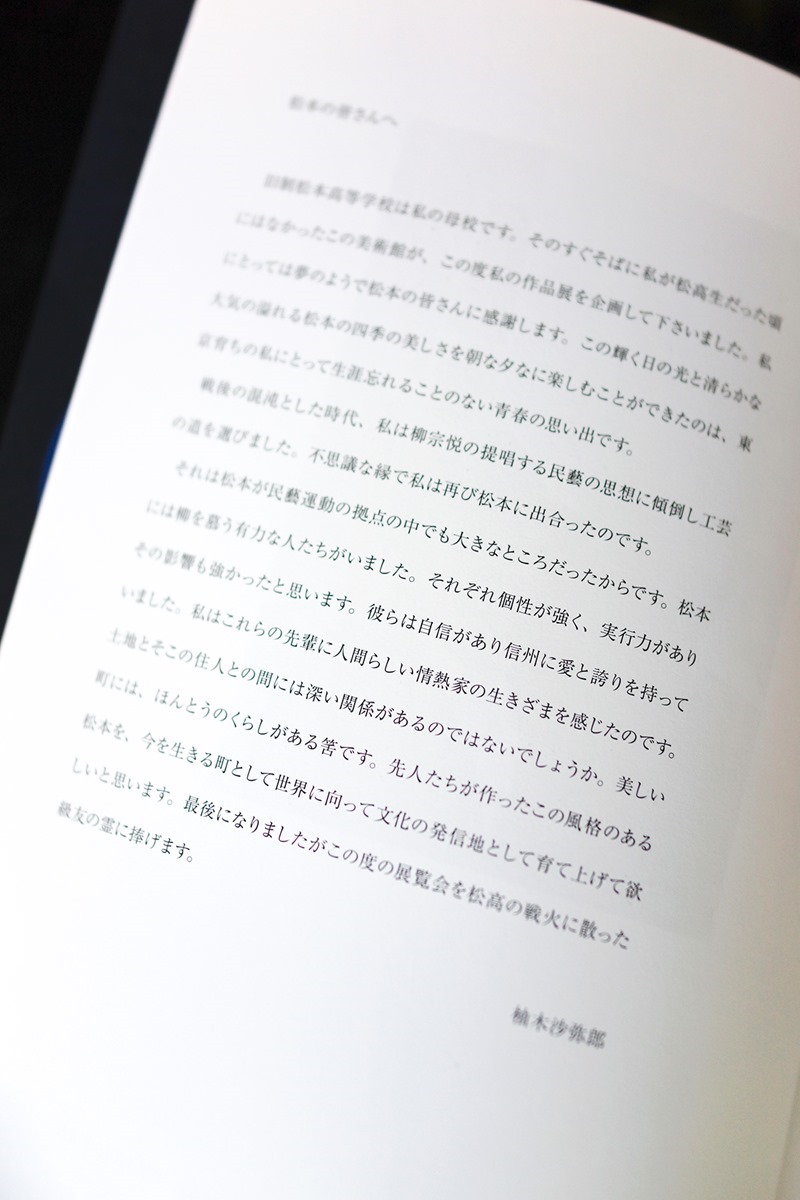 松本の皆さんへ
旧制松本高等学校は私の母校です。そのすぐそばに私が松高生だった頃
にはなかったこの美術館が、この度私の作品展を企画して下さいました。私
にとっては夢のようで松本の皆さんに感謝します。この輝く日の光と清らかな
大気の溢れる松本の四季の美しさを朝な夕なに楽しむことができたのは、東
京育ちの私にとって生涯忘れることのない青春の思い出です。
戦後の混沌とした時代、私は柳宗悦の提唱する民藝の思想に傾倒し工芸
の道を選びました。不思議な縁で私は再び松本に出合ったのです。
それは松本が民藝運動の拠点の中でも大きなところだったからです。松本
には柳を慕う有力な人たちがいました。それぞれ個性が強く、実行力があり
その影響も強かったと思います。彼らは自信があり信州に愛と誇りを持って
いました。私はこれらの先輩に人間らしい情熱家の生きざまを感じたのです。
土地とそこの住人との間には深い関係があるのではないでしょうか。美しい
町には、ほんとうのくらしがある筈です。先人たちが作ったこの風格のある
松本を、今を生きる町として世界に向って文化の発信地として育て上げて欲
しいと思います。最後になりましたがこの度の展覧会を松高の戦火に散った
級友の霊に捧げます。
柚木沙弥郎